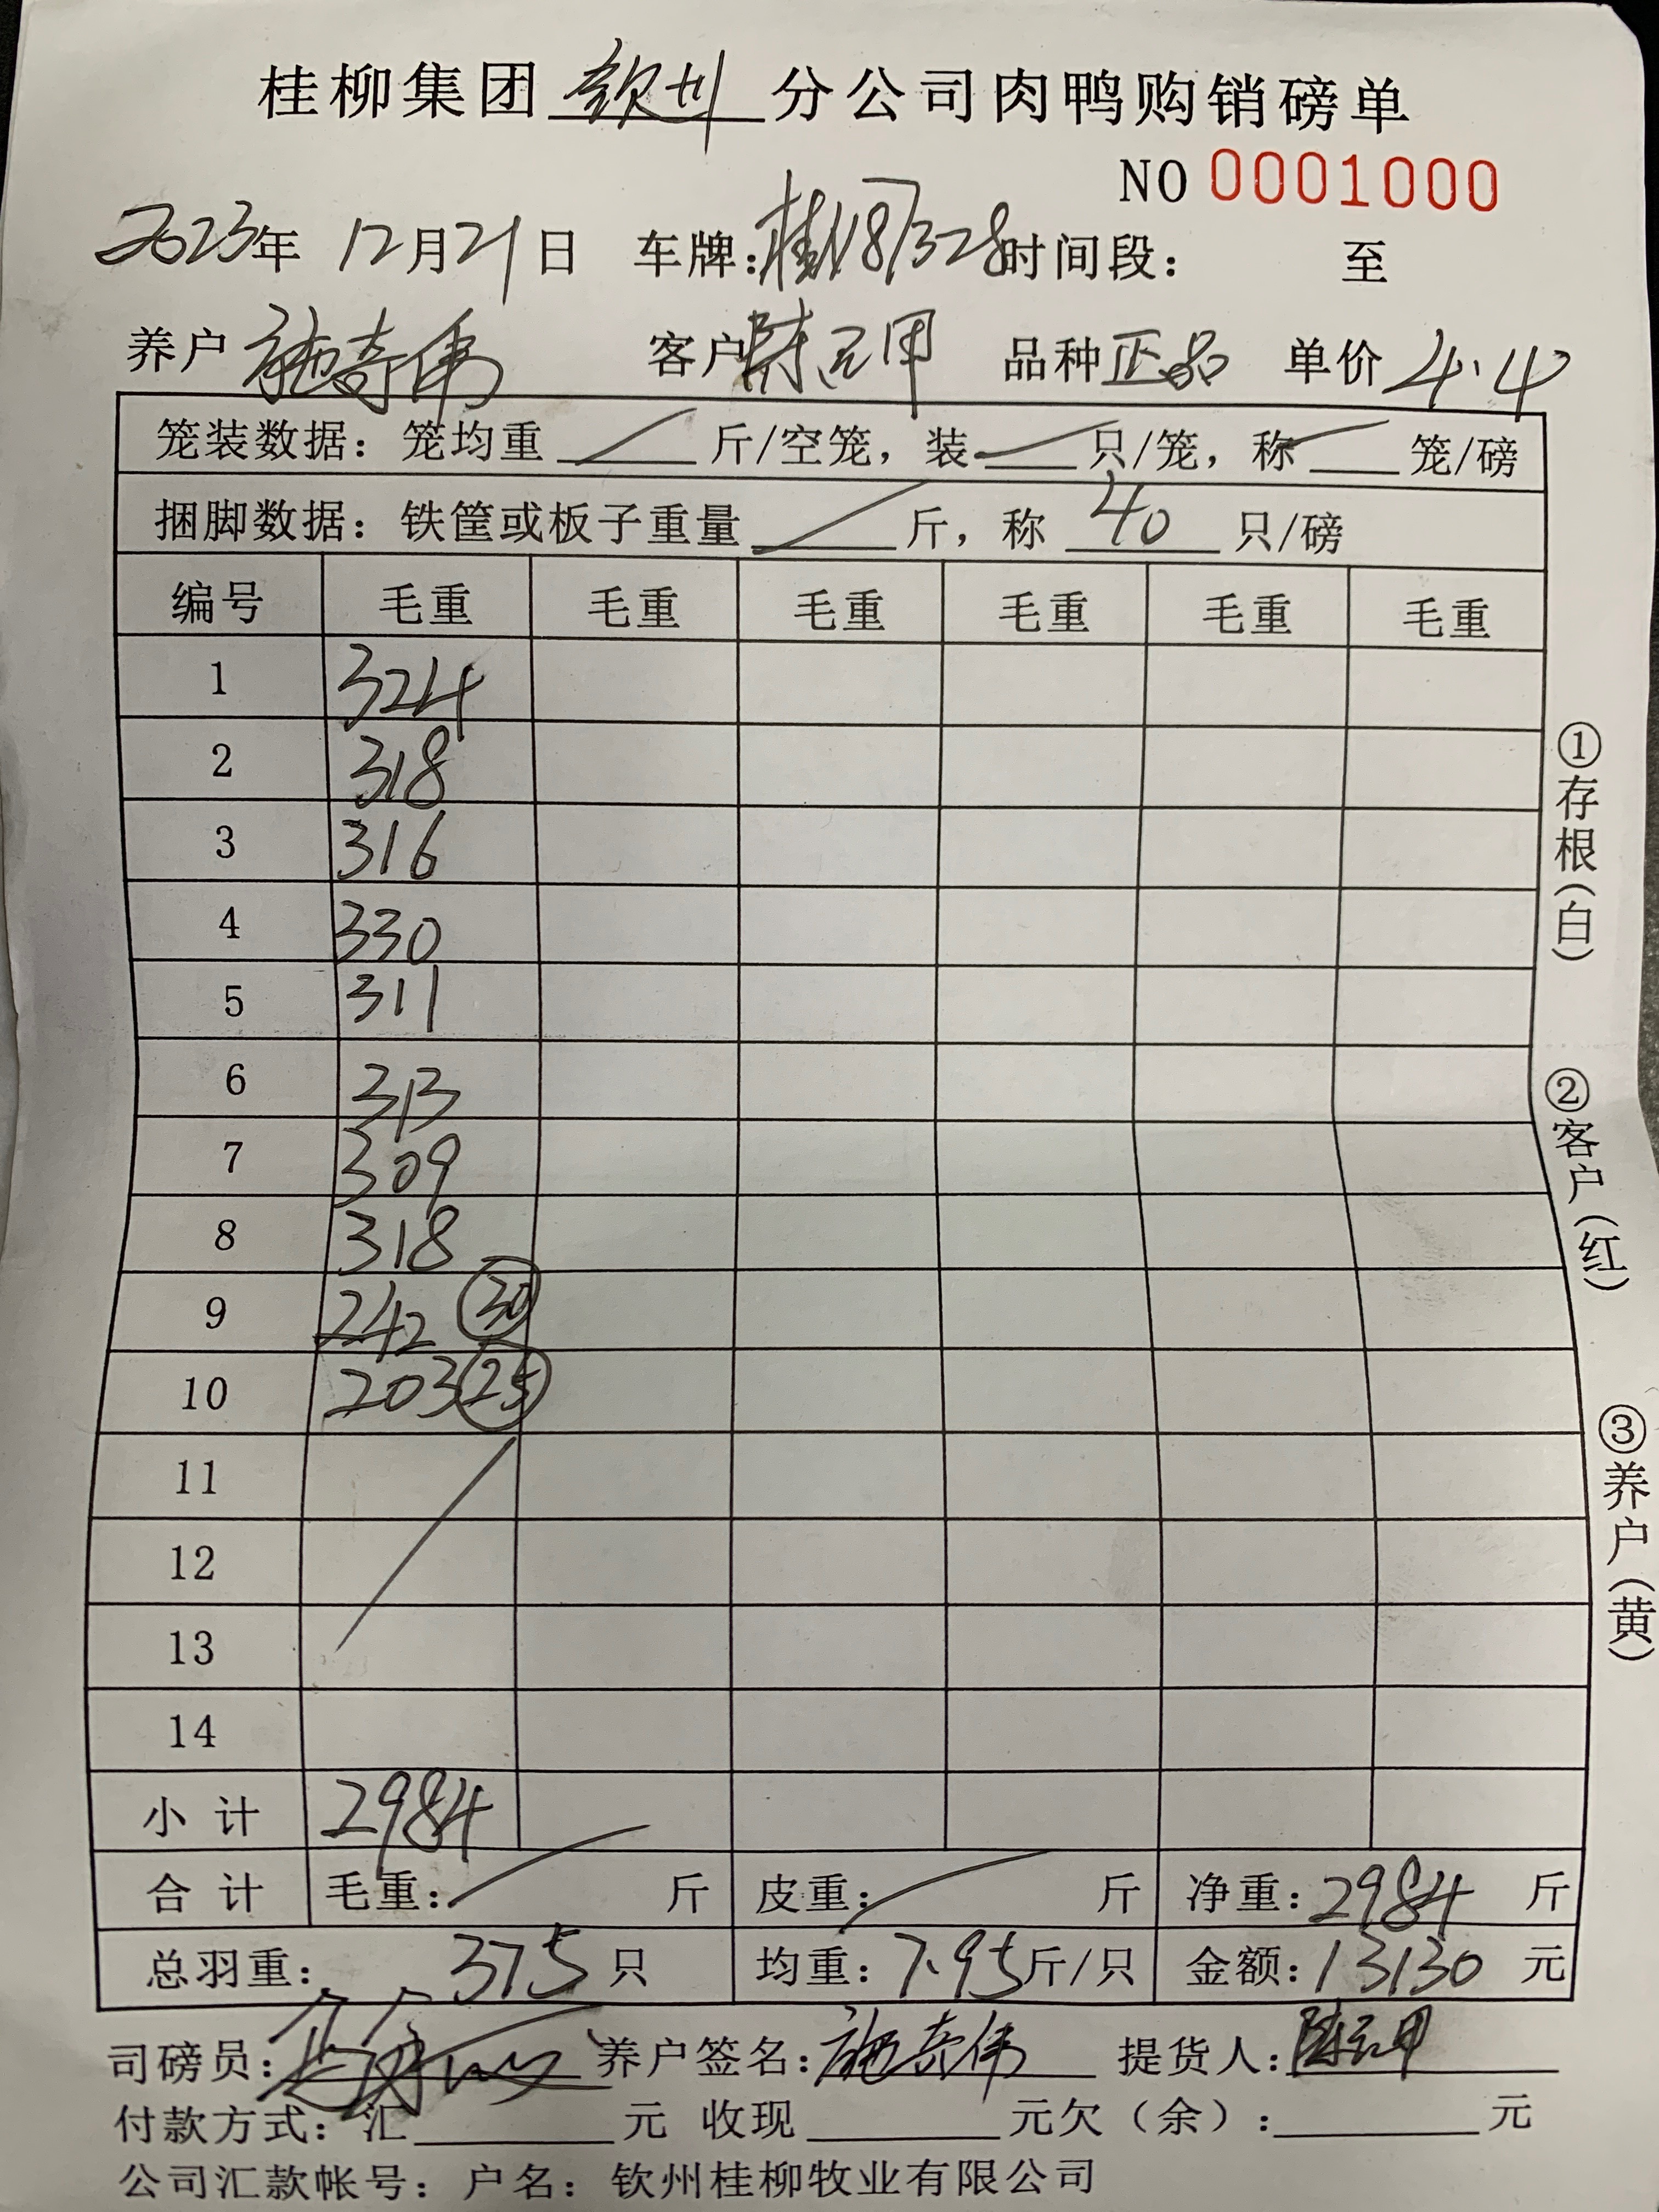 桂柳集团 钦州 分公司肉鸭购销磅单
NO 0001000
2023年 12月21日 车牌：桂N87328 时间段： 至
养户 施奇伟 客户 陈云甲 品种 正品 单价 4.4
笼装数据：笼均重 斤/空笼，装 只/笼，称 笼/磅
捆脚数据：铁筐或板子重量 斤，称 40 只/磅
编号 毛重 毛重 毛重 毛重 毛重 毛重
1 324
2 318
3 316
4 330
5 311
6 313
7 309
8 318
9 242 30
10 203 25
11
12
13
14
小计 2984
合计 毛重： 斤 皮重： 斤 净重：2984 斤
总羽重： 375 只 均重：7.95斤/只 金额：13130 元
司磅员： 养户签名：施奇伟 提货人：陈云甲
付款方式：汇 元 收现 元欠（余）： 元
公司汇款帐号：户名：钦州桂柳牧业有限公司
①存根（白）
②客户（红）
③养户（黄）